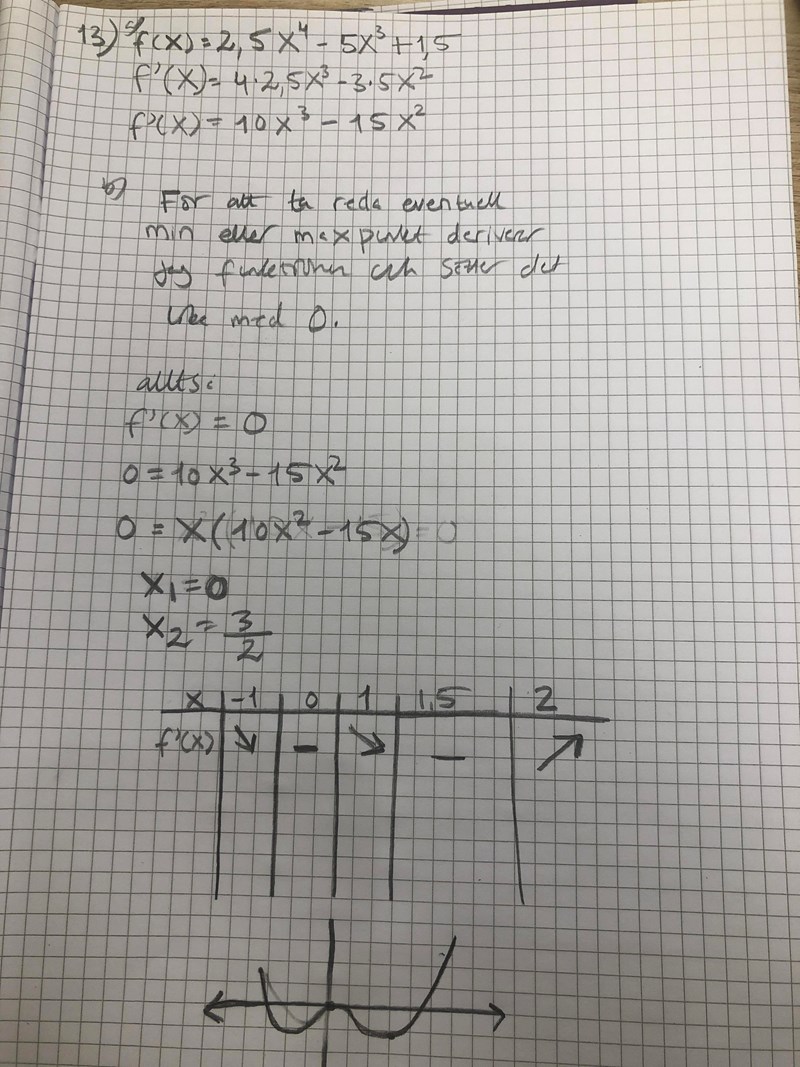 13) a) f(x) = 2,5x⁴ - 5x³ + 1,5
f'(x) = 4·2,5x³ - 3·5x²
f'(x) = 10x³ - 15x²
b) För att ta reda eventuell
min eller maxpunkt deriverar
jag funktionen och sätter det
lika med 0.
alltså:
f'(x) = 0
0 = 10x³ - 15x²
0 = x(10x² - 15x) = 0
x₁ = 0
x₂ = 3/2
x | -1 | 0 | 1 | 1,5 | 2
f'(x) | ↘ | — | ↘ | — | ↗